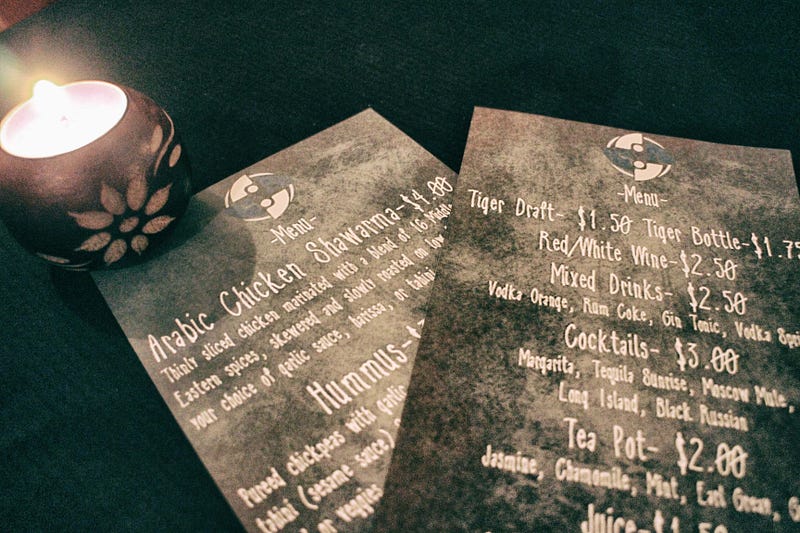 -Menu-
Arabic Chicken Shawarma-$4.00
Thinly sliced chicken marinated with a blend of 16 Middle
Eastern spices, skewered and slowly roasted on low,
your choice of garlic sauce, harissa, or tahini
Hummus-
Pureed chickpeas with garlic
tahini (sesame sauce)
or veggies
-Menu-
Tiger Draft- $1.50 Tiger Bottle-$1.75
Red/White Wine-$2.50
Mixed Drinks- $2.50
Vodka Orange, Rum Coke, Gin Tonic, Vodka
Cocktails- $3.00
Margarita, Tequila Sunrise, Moscow Mule,
Long Island, Black Russian
Tea Pot- $2.00
Jasmine, Chamomile, Mint, Earl Green,
Juice-$1.50